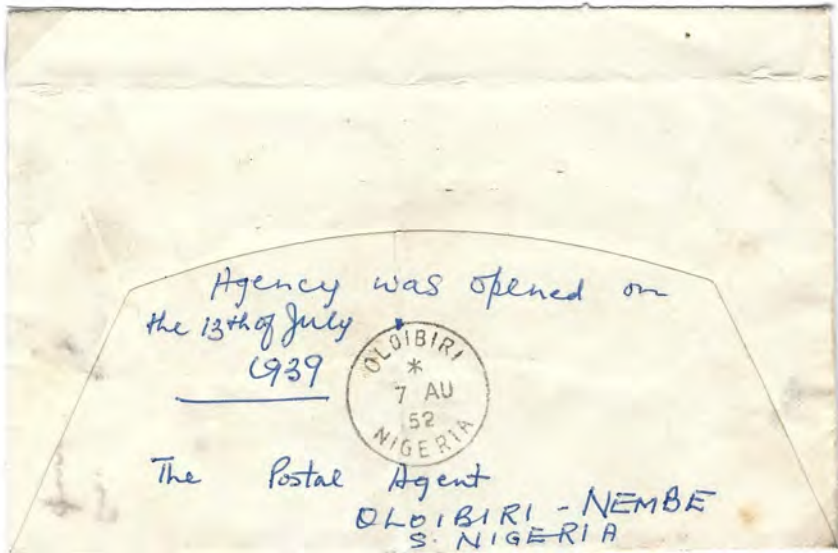 Agency was opened on
the 13th of July
1939
OLOIBIRI
*
7 AU
52
NIGERIA
The Postal Agent
OLOIBIRI - NEMBE
S. NIGERIA